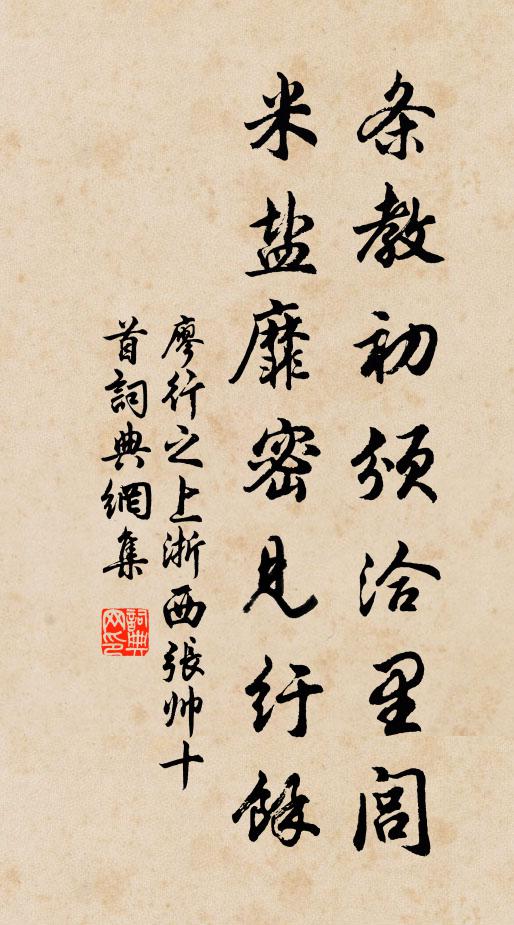 条教初颁洽里闾
米盐靡密见纡馀
廖行之上浙西張帅十
首詞典網集
詞典
网印